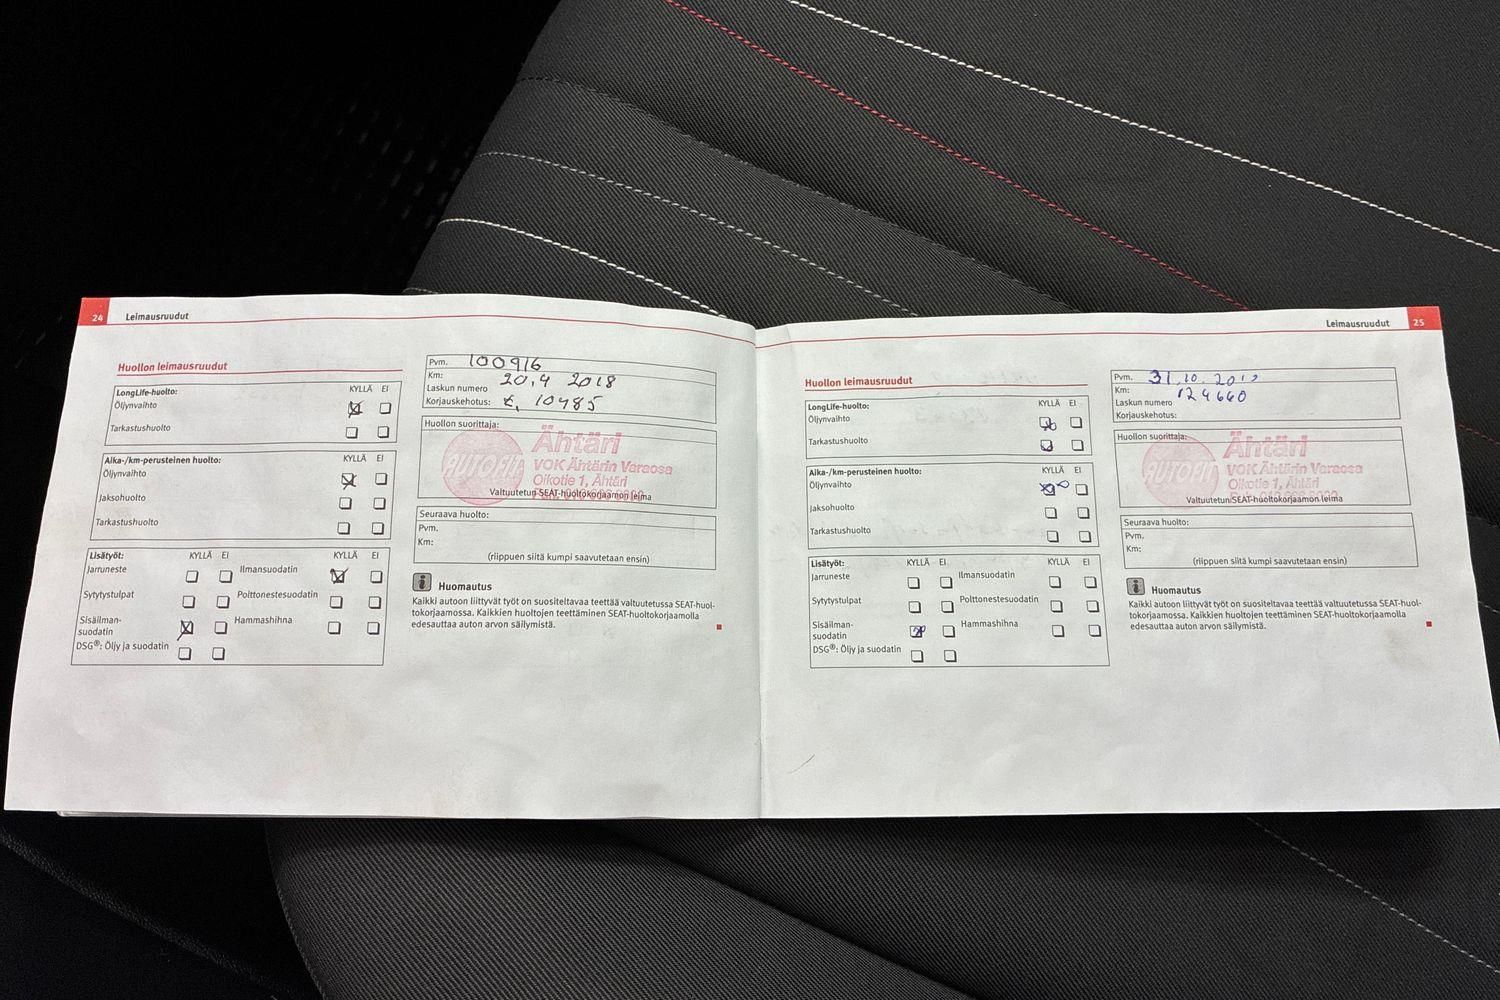 24 Leimausruudut
Huollon leimausruudut
LongLife-huolto: KYLLÄ EI
Öljynvaihto
Tarkastushuolto
Aika-/km-perusteinen huolto: KYLLÄ EI
Öljynvaihto
Jaksohuolto
Tarkastushuolto
Lisätyöt: KYLLÄ EI KYLLÄ EI
Jarruneste Ilmansuodatin
Sytytystulpat Polttonestesuodatin
Sisäilman-
suodatin Hammashihna
DSG®: Öljy ja suodatin
Pvm. 100916
Km: 20.4 2018
Laskun numero
Korjauskehotus: 10485
Huollon suorittaja:
AUTOFIT
Ähtäri
VOK Ähtärin Varaosa
Oikotie 1, Ähtäri
Valtuutetun SEAT-huoltokorjaamon leima
Seuraava huolto:
Pvm.
Km:
(riippuen siitä kumpi saavutetaan ensin)
i Huomautus
Kaikki autoon liittyvät työt on suositeltavaa teettää valtuutetussa SEAT-huol-
tokorjaamossa. Kaikkien huoltojen teettäminen SEAT-huoltokorjaamolla
edesauttaa auton arvon säilymistä.
Leimausruudut 25
Huollon leimausruudut
LongLife-huolto: KYLLÄ EI
Öljynvaihto
Tarkastushuolto
Aika-/km-perusteinen huolto: KYLLÄ EI
Öljynvaihto
Jaksohuolto
Tarkastushuolto
Lisätyöt: KYLLÄ EI KYLLÄ EI
Jarruneste Ilmansuodatin
Sytytystulpat Polttonestesuodatin
Sisäilman-
suodatin Hammashihna
DSG®: Öljy ja suodatin
Pvm. 31.10.
Km: 124660
Laskun numero
Korjauskehotus:
Huollon suorittaja:
AUTOFIT
Ähtäri
VOK Ähtärin Varaosa
Oikotie 1, Ähtäri
Valtuutetun SEAT-huoltokorjaamon leima
Seuraava huolto:
Pvm.
Km:
(riippuen siitä kumpi saavutetaan ensin)
i Huomautus
Kaikki autoon liittyvät työt on suositeltavaa teettää valtuutetussa SEAT-huol-
tokorjaamossa. Kaikkien huoltojen teettäminen SEAT-huoltokorjaamolla
edesauttaa auton arvon säilymistä.